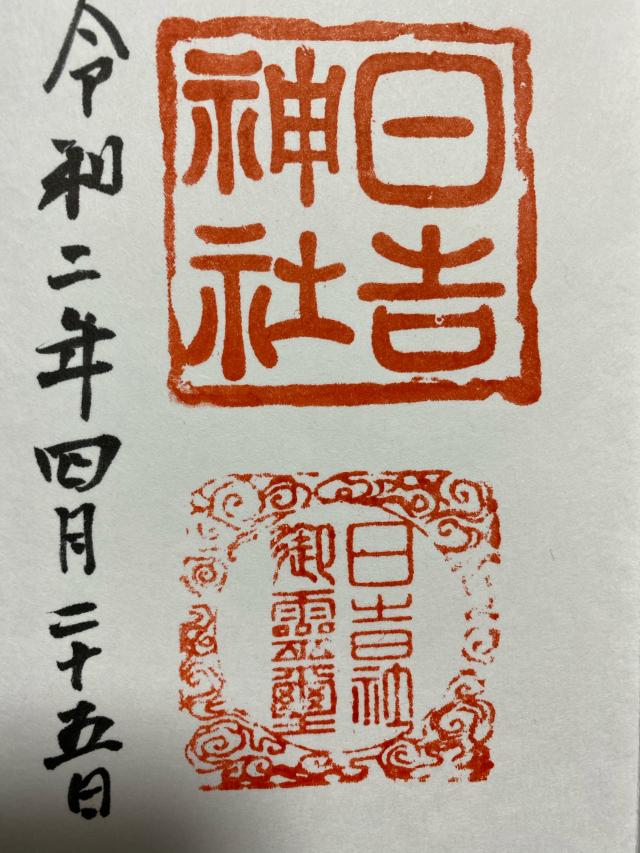 日吉
神社
日吉社
御霊璽
令和二年四月二十五日